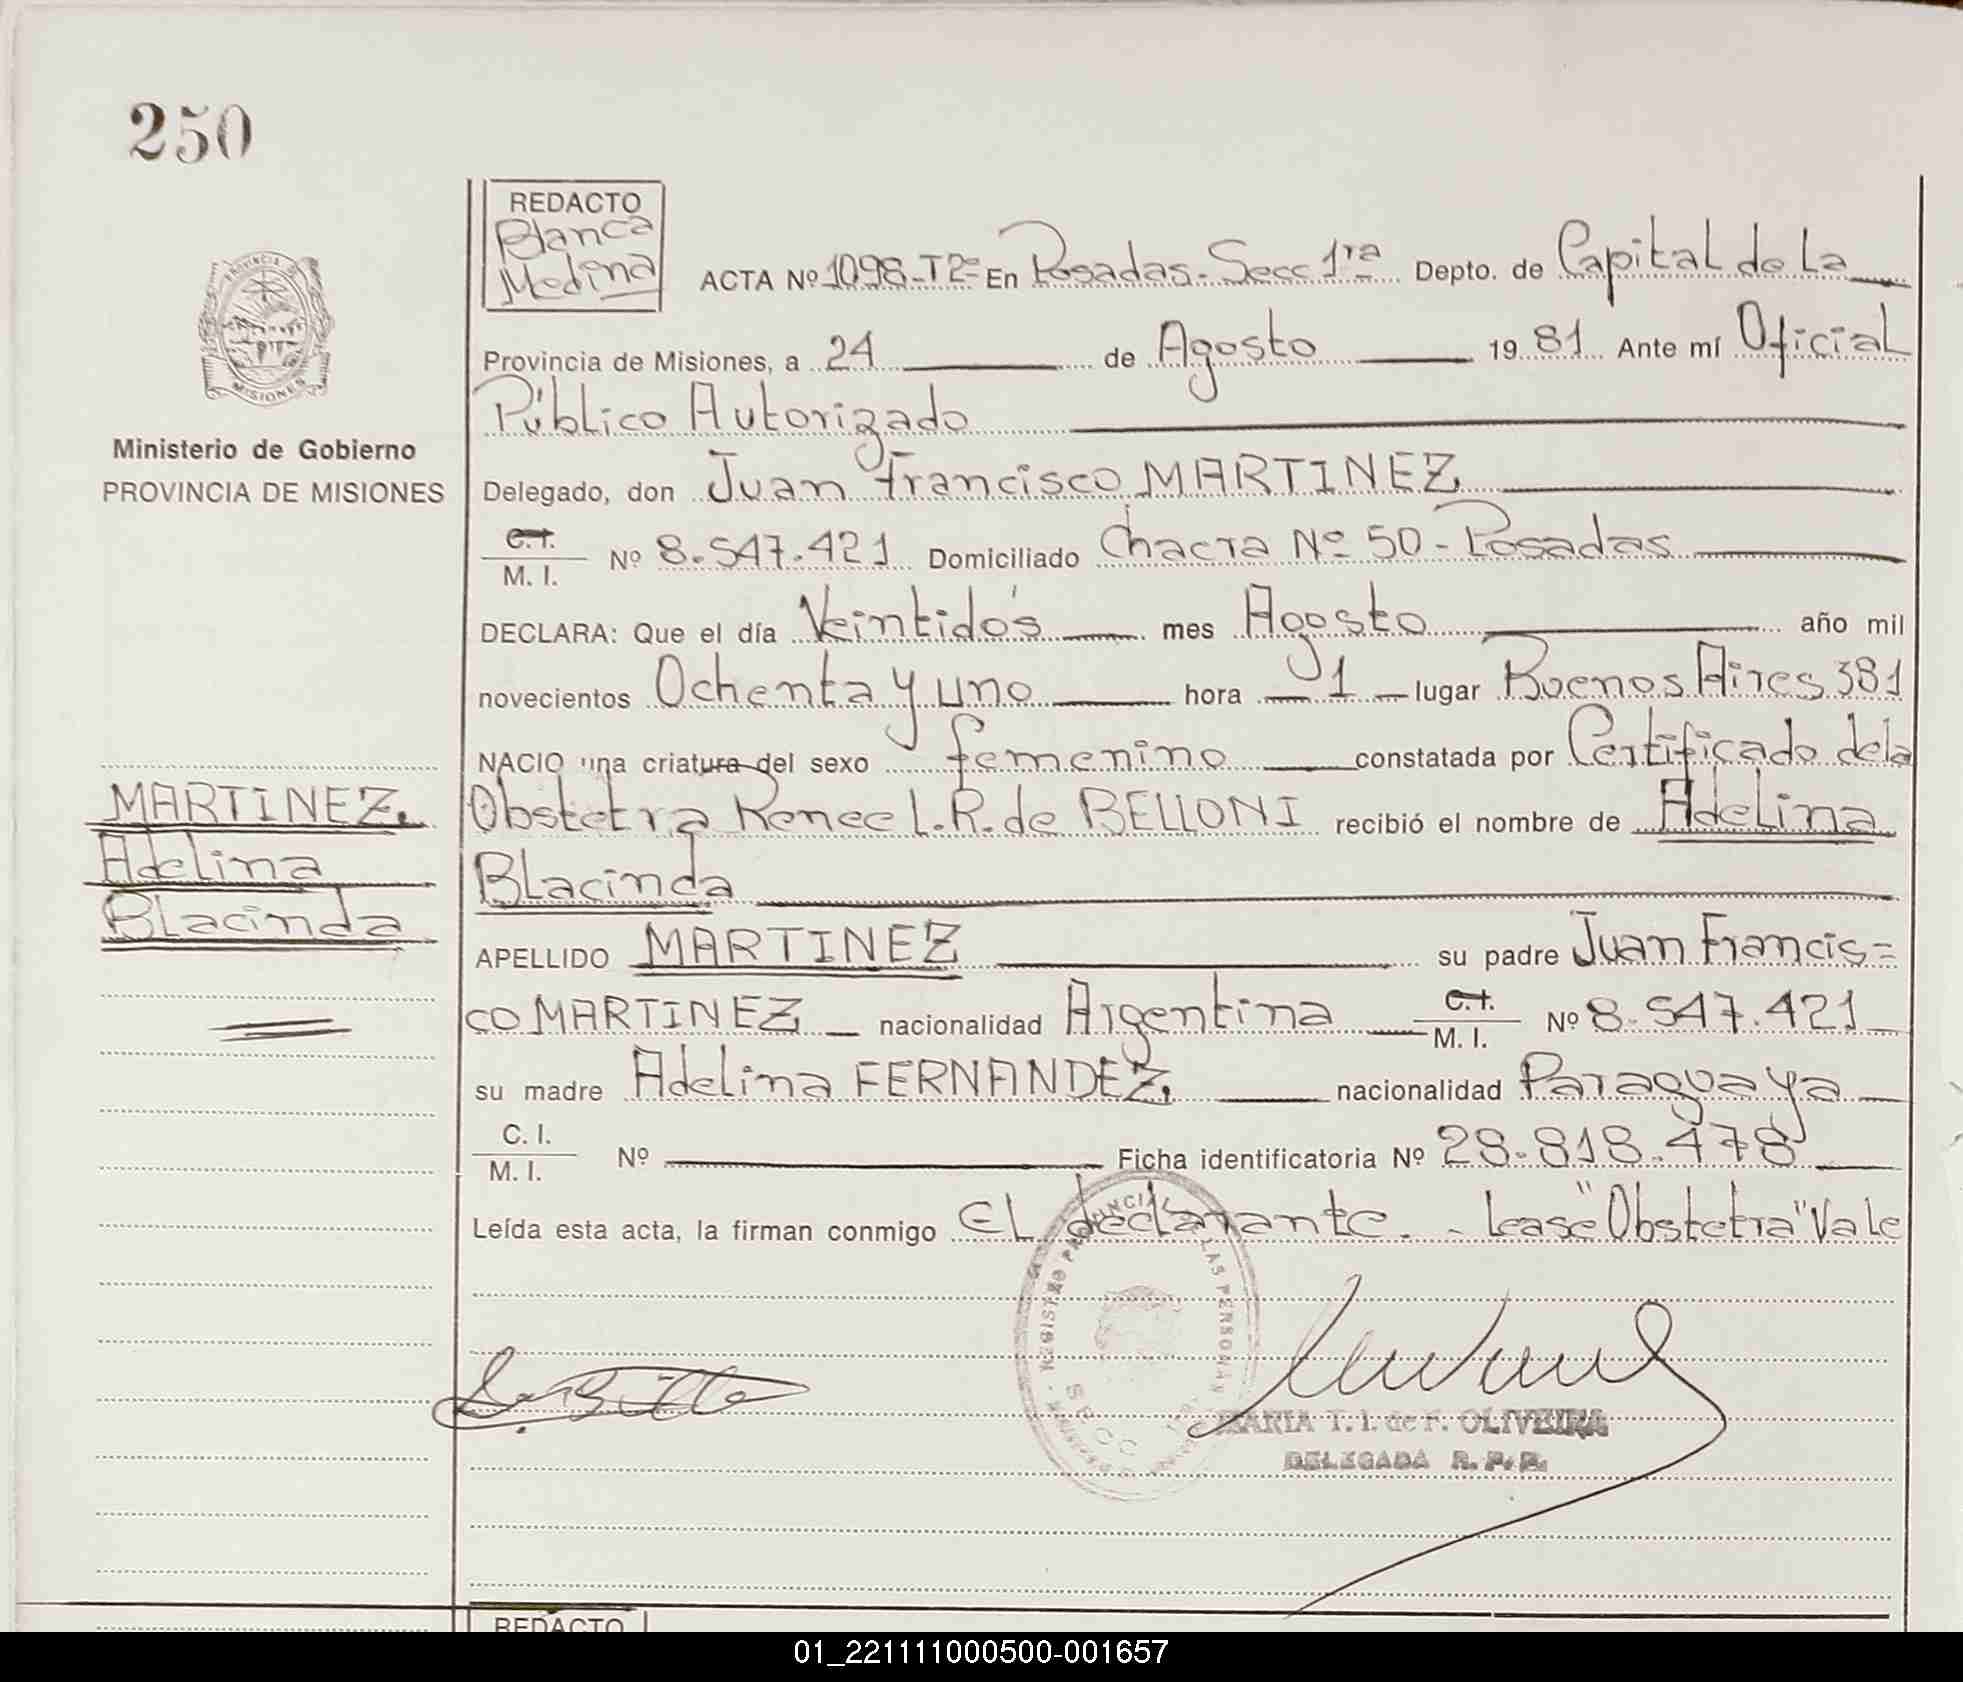 250
REDACTO
Blanca
Medina
ACTA Nº 1098-T2º En Posadas-Secc. 1ra Depto. de Capital de la
Provincia de Misiones, a 24 de Agosto 1981 Ante mí Oficial
Público Autorizado
Delegado, don Juan Francisco MARTINEZ
C.I.
M. I. Nº 8.547.421 Domiciliado Chacra Nº 50-Posadas
DECLARA: Que el día Veintidós mes Agosto año mil
novecientos Ochenta y uno hora 1 lugar Buenos Aires 381
NACIO una criatura del sexo femenino constatada por Certificado de la
Obstetra Renee L.R. de BELLONI recibió el nombre de Adelina
Blacinda
APELLIDO MARTINEZ su padre Juan Francis=
co MARTINEZ nacionalidad Argentina C.I.
M. I. Nº 8.547.421
su madre Adelina FERNANDEZ nacionalidad Paraguaya
C. I.
M. I. Nº Ficha identificatoria Nº 28.818.478
Leída esta acta, la firman conmigo El declarante.- Lease "Obstetra" Vale
PROVINCIA DE
MISIONES
Ministerio de Gobierno
PROVINCIA DE MISIONES
MARTINEZ,
Adelina
Blacinda
REGISTRO PROVINCIAL LAS PERSONAS
SECC.
MARIA T. I. de F. OLIVEIRA
DELEGADA R. P. P.
REDACTO
01_221111000500-001657